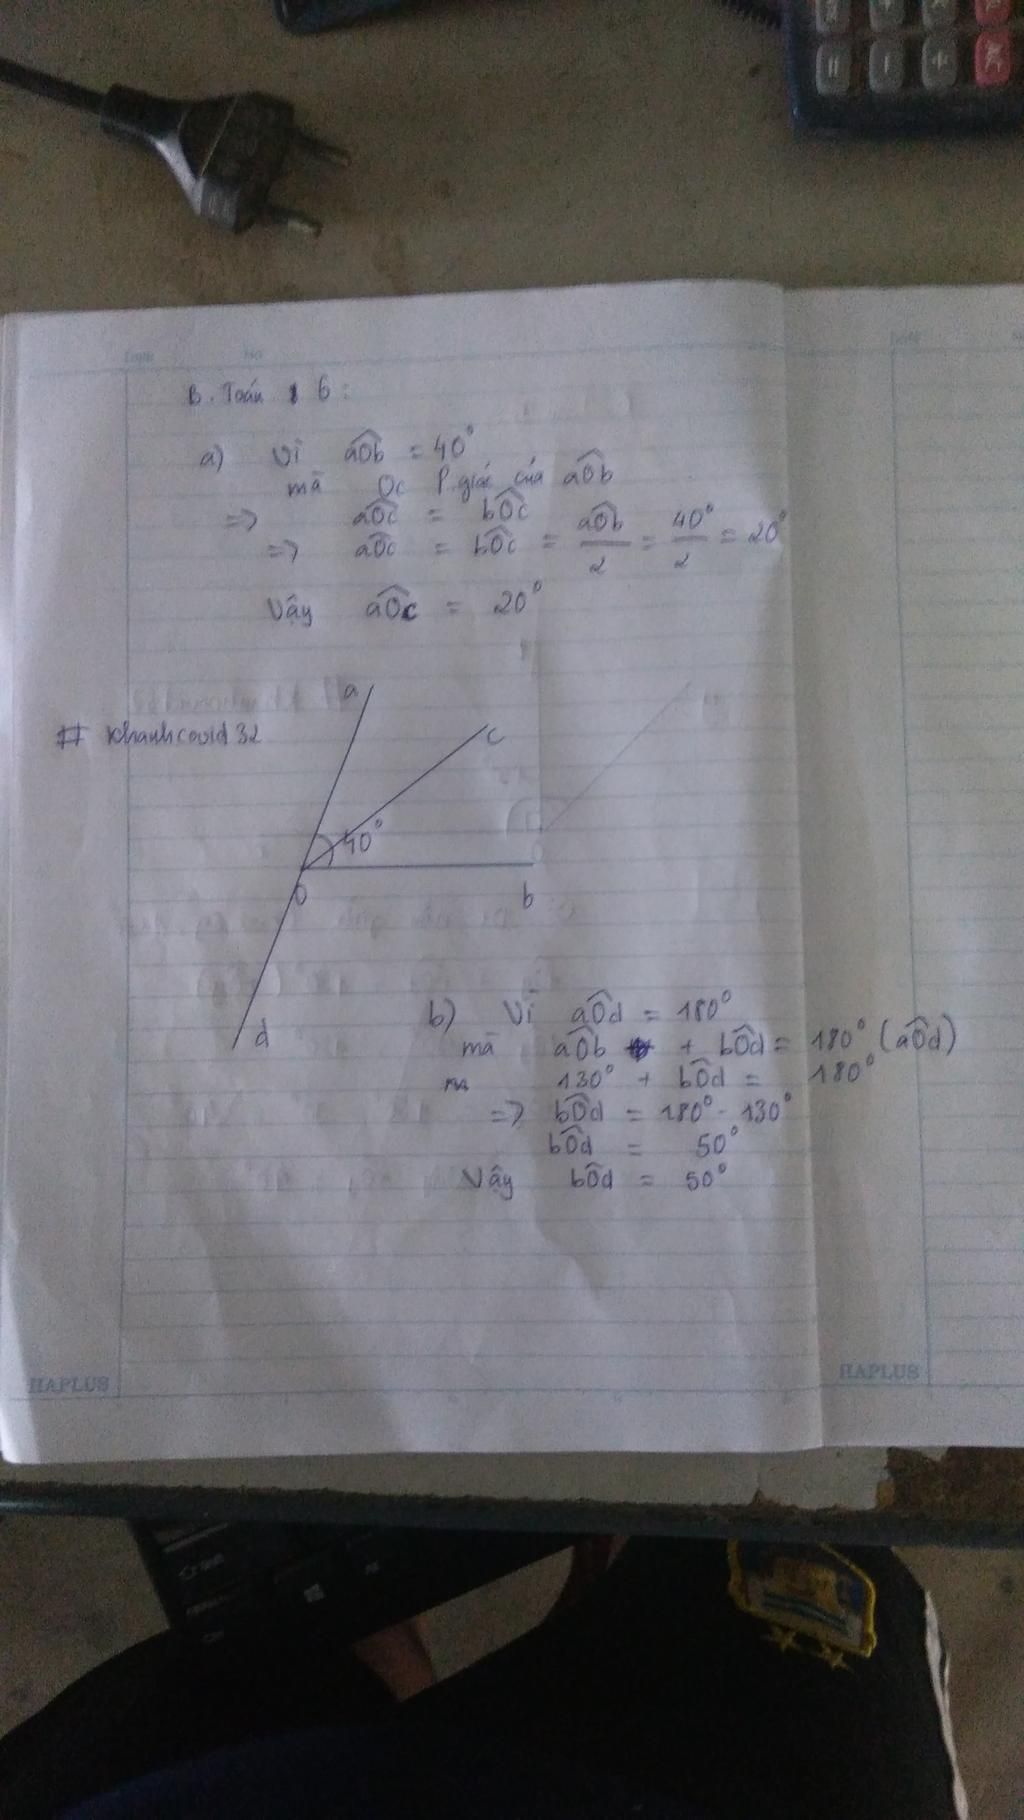 B. Toán 6:
a) Vì aOb = 40°
mà Oc P.giác của aOb
=> aOc = bOc
=> aOc = bOc = aOb/2 = 40°/2 = 20°
Vậy aOc = 20°
a
# Khanhcovid 32
c
40°
O
b
d
b) Vì aOd = 180°
mà aOb + bOd = 180° (aOd)
130° + bOd = 180°
=> bOd = 180° - 130°
bOd = 50°
Vậy bOd = 50°
HAPLUS
HAPLUS